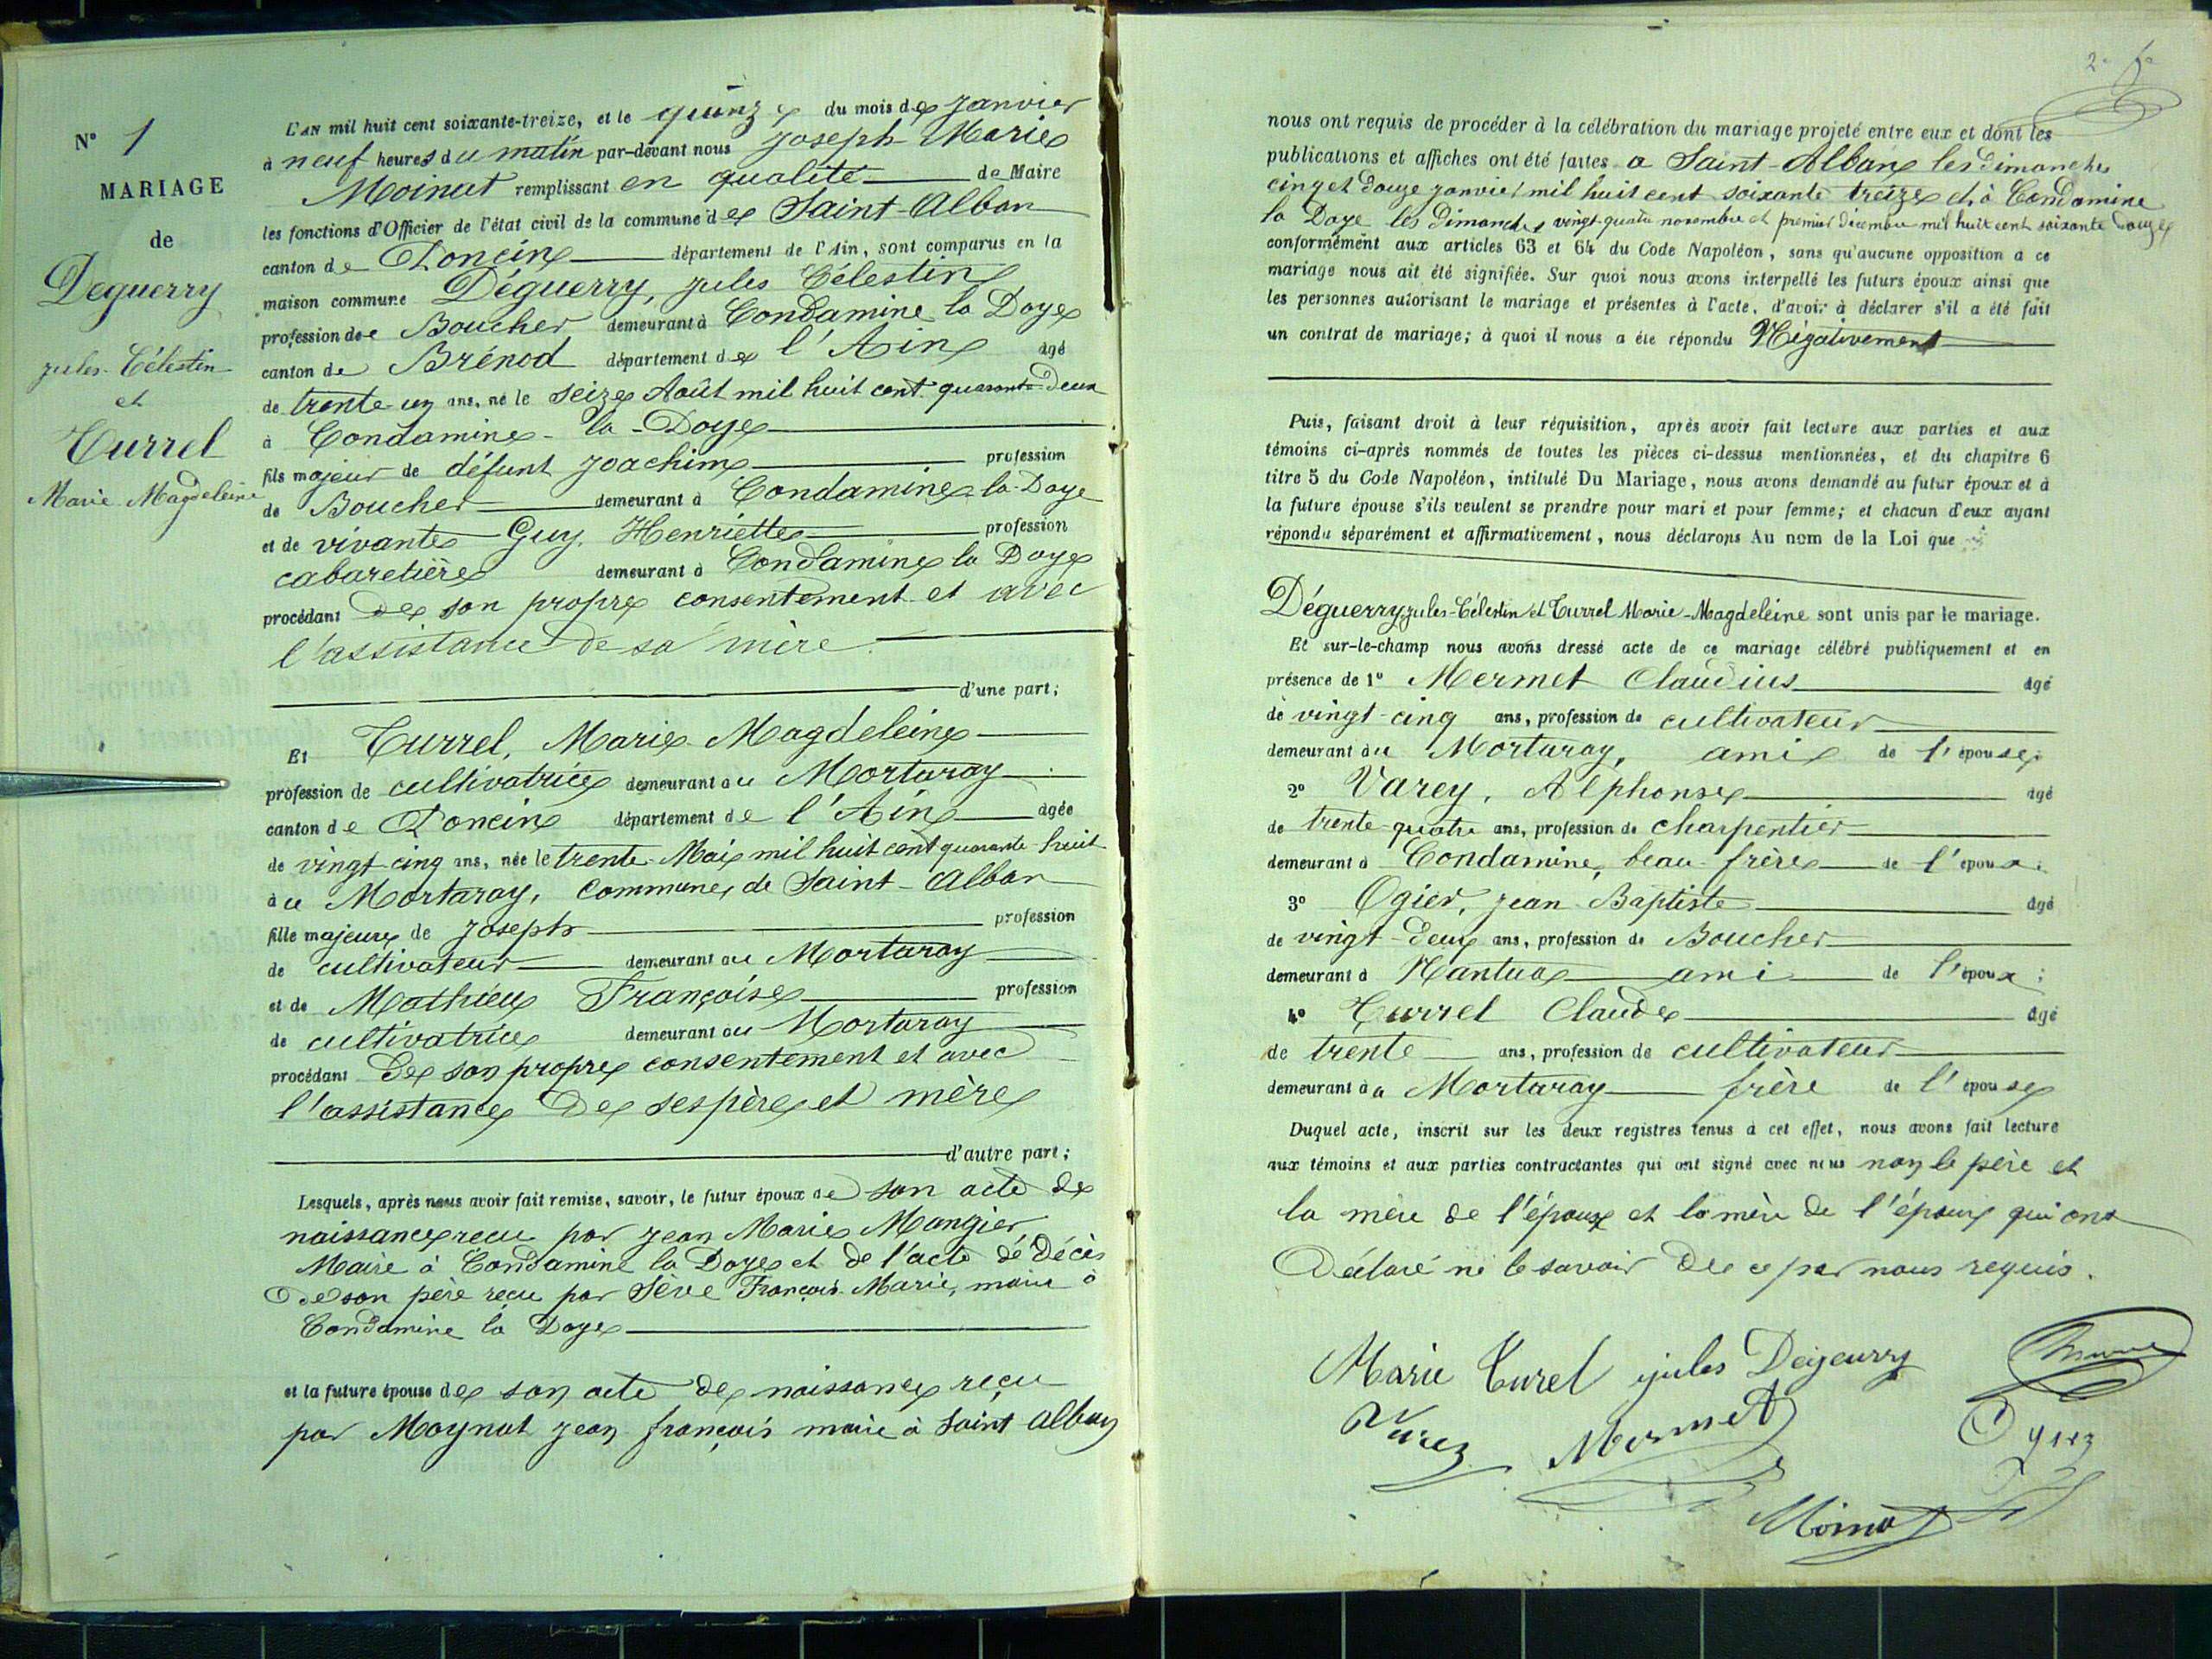 N° 1
MARIAGE
de
Deguerry
jules Célestin
et
Turrel
Marie Magdeleine
L'AN mil huit cent soixante-treize, et le quinze du mois de janvier
à neuf heures du matin par-devant nous Joseph-Marie
Moinat remplissant en qualité de Maire
les fonctions d'Officier de l'état civil de la commune de Saint-Alban
canton de Poncin département de l'Ain, sont comparus en la
maison commune Déguerry, jules Célestin
profession de Boucher demeurant à Condamine la Doye
canton de Brénod département de l'Ain âgé
de trente-un ans, né le seize Août mil huit cent quarante-deux
à Condamine-la-Doye
fils majeur de défunt joachim profession
de Boucher demeurant à Condamine-la-Doye
et de vivante Guy, Henriette profession
cabaretière demeurant à Condamine la Doye
procédant de son propre consentement et avec
l'assistance de sa mère.
d'une part;
Et Turrel, Marie Magdeleine
profession de cultivatrice demeurant au Mortaray
canton de Poncin département de l'Ain âgée
de vingt-cinq ans, née le trente Mai mil huit cent quarante-huit
à au Mortaray, commune de Saint-Alban
fille majeure de joseph profession
de cultivateur demeurant au Mortaray
et de Mathieu Françoise profession
de cultivatrice demeurant au Mortaray
procédant de son propre consentement et avec
l'assistance de ses père et mère
d'autre part;
Lesquels, après nous avoir fait remise, savoir, le futur époux de son acte de
naissance recu par jean Marie Mangier
Maire à Condamine la Doye et de l'acte de décès
de son père reçu par Sève François-Marie, maire à
Condamine la Doye
et la future épouse de son acte de naissance reçu
par Moynat jean françois maire à Saint Alban
nous ont requis de procéder à la célébration du mariage projeté entre eux et dont les
publications et affiches ont été faites a Saint-Alban les dimanches
cinq et douze janvier mil huit cent soixante treize et à Condamine
la Doye les dimanches vingt-quatre novembre et premier décembre mil huit cent soixante douze
conformément aux articles 63 et 64 du Code Napoléon, sans qu'aucune opposition a ce
mariage nous ait été signifiée. Sur quoi nous avons interpellé les futurs époux ainsi que
les personnes autorisant le mariage et présentes à l'acte, d'avoir à déclarer s'il a été fait
un contrat de mariage; à quoi il nous a été répondu Négativement
Puis, faisant droit à leur réquisition, après avoir fait lecture aux parties et aux
témoins ci-après nommés de toutes les pièces ci-dessus mentionnées, et du chapitre 6
titre 5 du Code Napoléon, intitulé Du Mariage, nous avons demandé au futur époux et à
la future épouse s'ils veulent se prendre pour mari et pour femme; et chacun d'eux ayant
répondu séparément et affirmativement, nous déclarons Au nom de la Loi que
Déguerry jules-Célestin et Turrel Marie-Magdeleine sont unis par le mariage.
Et sur-le-champ nous avons dressé acte de ce mariage célébré publiquement et en
présence de 1° Mermet Claudius âgé
de vingt-cinq ans, profession de cultivateur
demeurant au Mortaray, ami de l'épouse;
2° Varey, Alphonse âgé
de trente-quatre ans, profession de charpentier
demeurant à Condamine, beau-frère de l'époux;
3° Ogier, jean Baptiste âgé
de vingt-deux ans, profession de Boucher
demeurant à Nantua ami de l'époux;
4° Turrel Claude âgé
de trente ans, profession de cultivateur
demeurant à a Mortaray frère de l'épouse
Duquel acte, inscrit sur les deux registres tenus à cet effet, nous avons fait lecture
aux témoins et aux parties contractantes qui ont signé avec nous non le père et
la mère de l'épouse et la mère de l'époux qui ont
déclaré ne le savoir de ce par nous requis.
Marie Turel jules Degeurry
Varez Mermet
Moinat